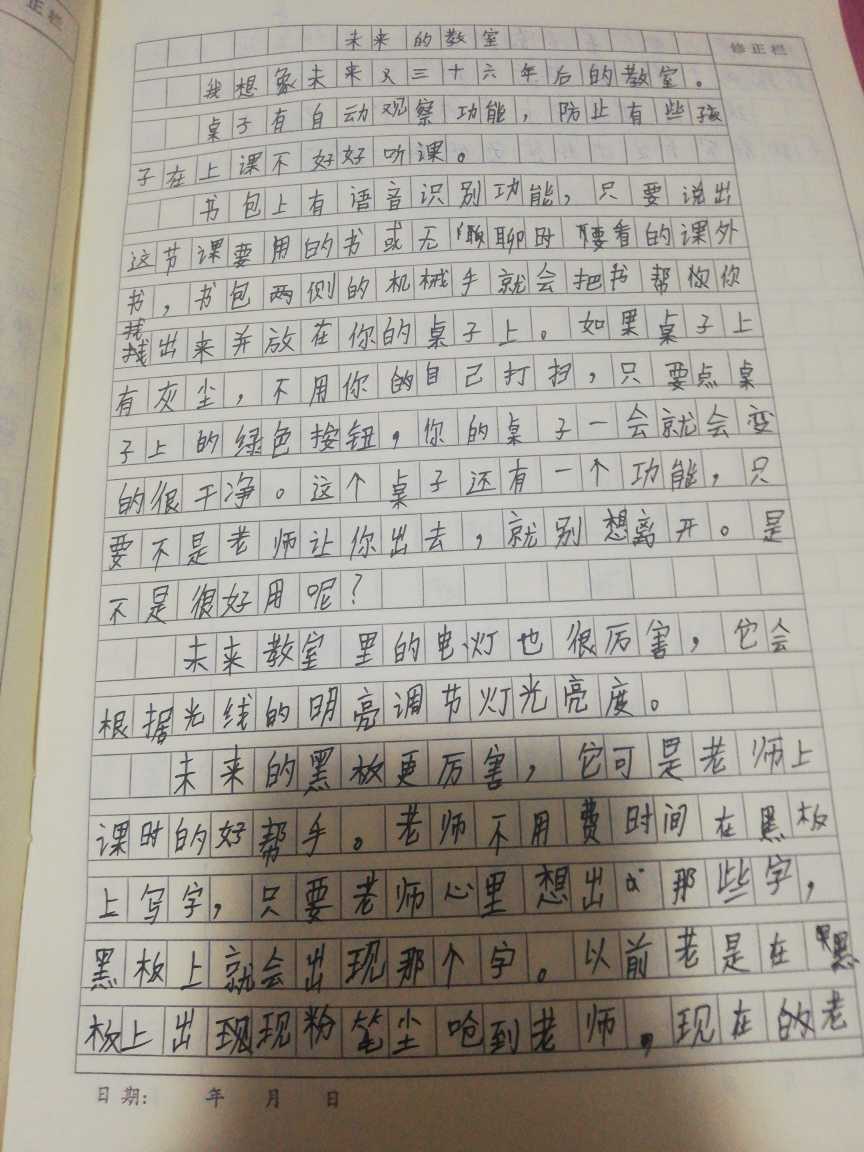 正栏
未来的教室
修正栏
我想象未来又三十六年后的教室。
桌子有自动观察功能，防止有些孩
子在上课不好好听课。
书包上有语音识别功能，只要说出
这节课要用的书或无聊时要看的课外
书，书包两侧的机械手就会把书帮你
找出来并放在你的桌子上。如果桌子上
有灰尘，不用你的自己打扫，只要点桌
子上的绿色按钮，你的桌子一会就会变
的很干净。这个桌子还有一个功能，只
要不是老师让你出去，就别想离开。是
不是很好用呢？
未来教室里的电灯也很厉害，它会
根据光线的明亮调节灯光亮度。
未来的黑板更厉害，它可是老师上
课时的好帮手。老师不用费时间在黑板
上写字，只要老师心里想出那些字，
黑板上就会出现那个字。以前老是在黑
板上出现现粉笔尘呛到老师，现在的老
日期： 年 月 日